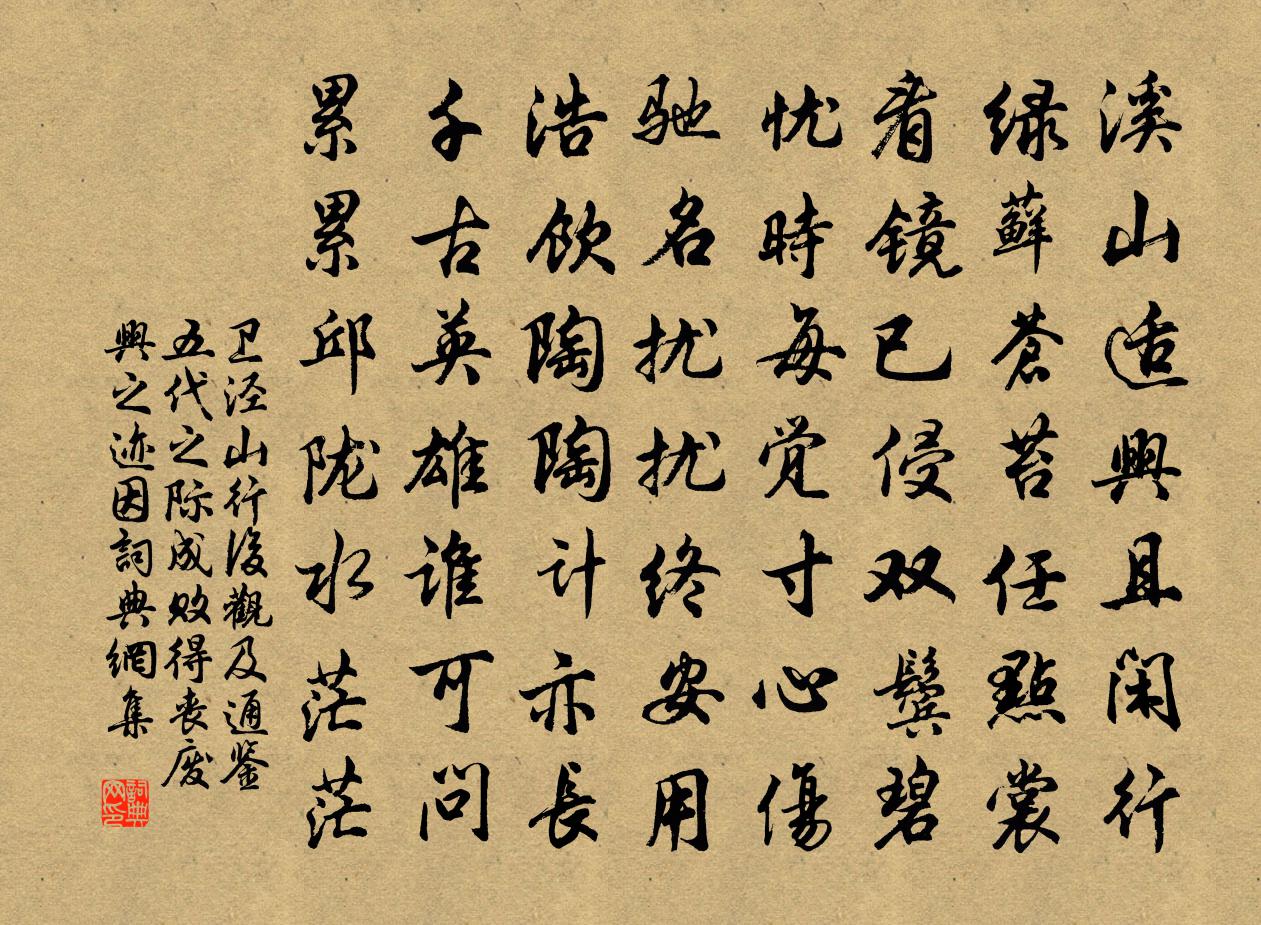 溪山适興且闲行
绿蘚苍苔任點裳
看镜已侵双鬓碧
忧時每觉寸心傷
驰名扰扰终安用
浩飲陶陶计亦長
千古英雄谁可问
累累邱陇水茫茫
卫泾山行後觀及通鉴
五代之际成败得丧废
興之迹因詞典網集
詞典
网印